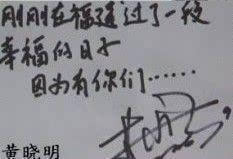 刚刚在福建过了一段
幸福的日子
因为有你们……
黄晓明